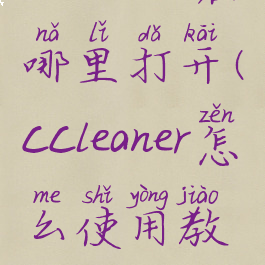 nǎ lǐ dǎ kāi
哪里打开(
zěn
CCleaner怎
me shǐ yòng jiào
么使用教